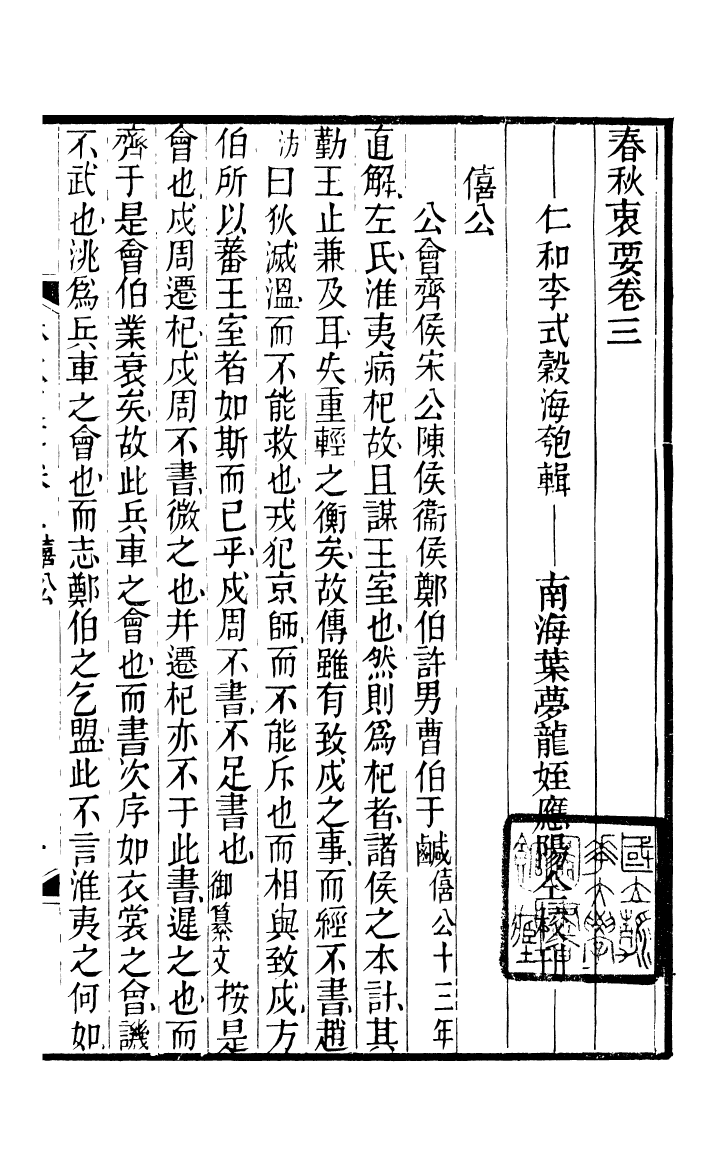 春秋衷要卷三
仁和李式穀海匏輯　南海葉夢龍姪應陽仝校刊
僖公
公會齊侯宋公陳侯衞侯鄭伯許男曹伯于鹹僖公十三年
直解左氏淮夷病杞故且謀王室也然則爲杞者諸侯之本計其
勤王止兼及耳失重輕之衡矣故傳雖有致戍之事而經不書趙
汸曰狄滅溫而不能救也戎犯京師而不能斥也而相與致戍方
伯所以蕃王室者如斯而已乎戍周不書不足書也御纂文　按是
會也戍周遷杞戍周不書微之也并遷杞亦不于此書遲之也而
齊于是會伯業衰矣故此兵車之會也而書次序如衣裳之會譏
不武也洮爲兵車之會也而志鄭伯之乞盟此不言淮夷之何如
僖公